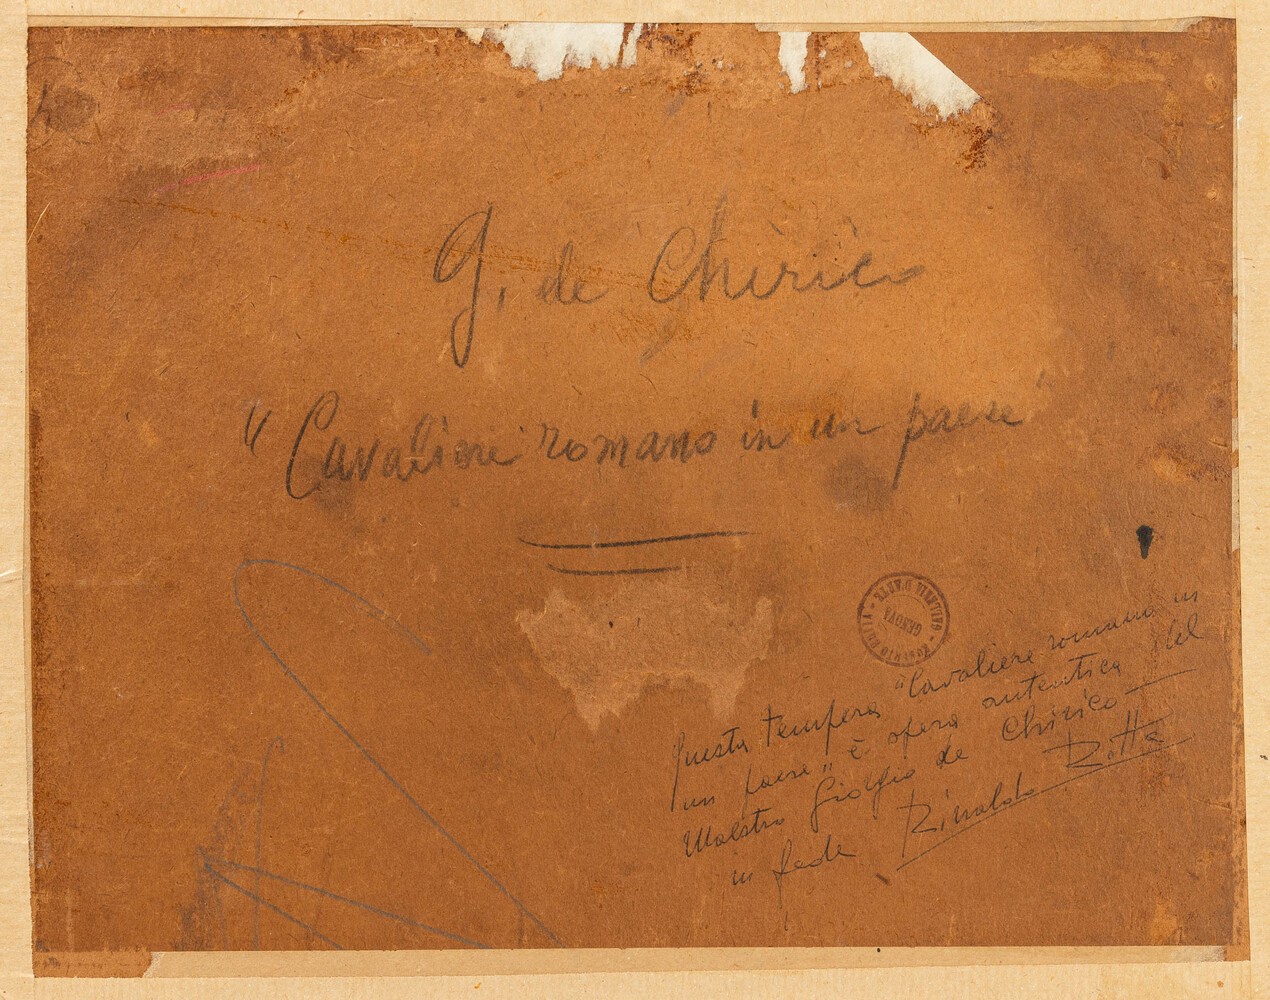 G. de Chirico
"Cavaliere romano in un paese"
GALLERIA D'ARTE - ROTTA
GENOVA
Questa tempera "Cavaliere romano in
un paese" è opera autentica del
Maestro Giorgio de Chirico
in fede Rinaldo Rotta